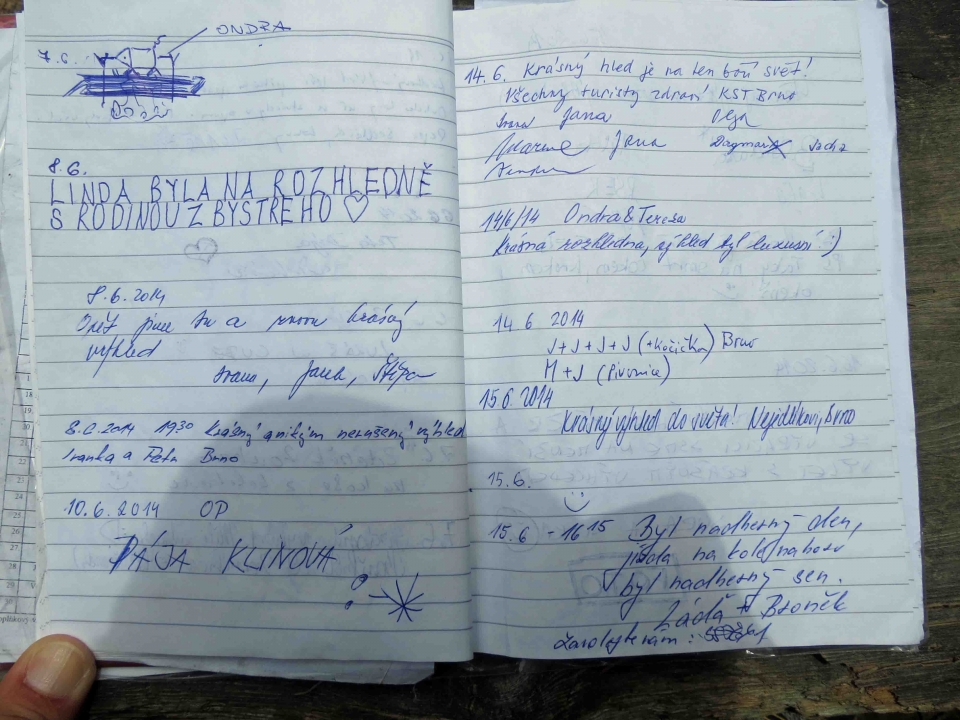 7.6.
ONDRA
8.6.
LINDA BYLA NA ROZHLEDNĚ
S RODINOU Z BYSTRÉHO ♡
8.6.2014
Opět jsme tu a znovu krásný
výhled
Ivana, Jana, Štěpán
8.6.2014 19:30 Krásný a nikým nerušený výhled
Ivanka a Petr Brno
10.6.2014 OP
PÁJA KLINOVÁ
14.6. Krásný hled je na ten boží svět!
Všechny turisty zdraví KST Brno
Ivana Jana Olga
Jana Dagmar
14/6/14 Ondra & Tereza
Krásná rozhledna, výhled byl luxusní :)
14 6 2014
J+J+J+J (+kočička) Brno
M+J (Pivonia)
15 6 2014
Krásný výhled do světa! Nejedlíkovi, Brno
15.6.
15.6 - 16 15 Byl nádherný den,
jízda na kole nahoru
byl nádherný sen.
Láďa + Broněk